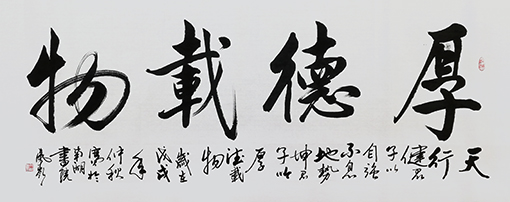 厚德載物
天
行
健君
子以
自強
不息
地勢
坤君
子以
厚
德載
物
歲在
戊戌
年
仲秋
寫於
南湖
書院